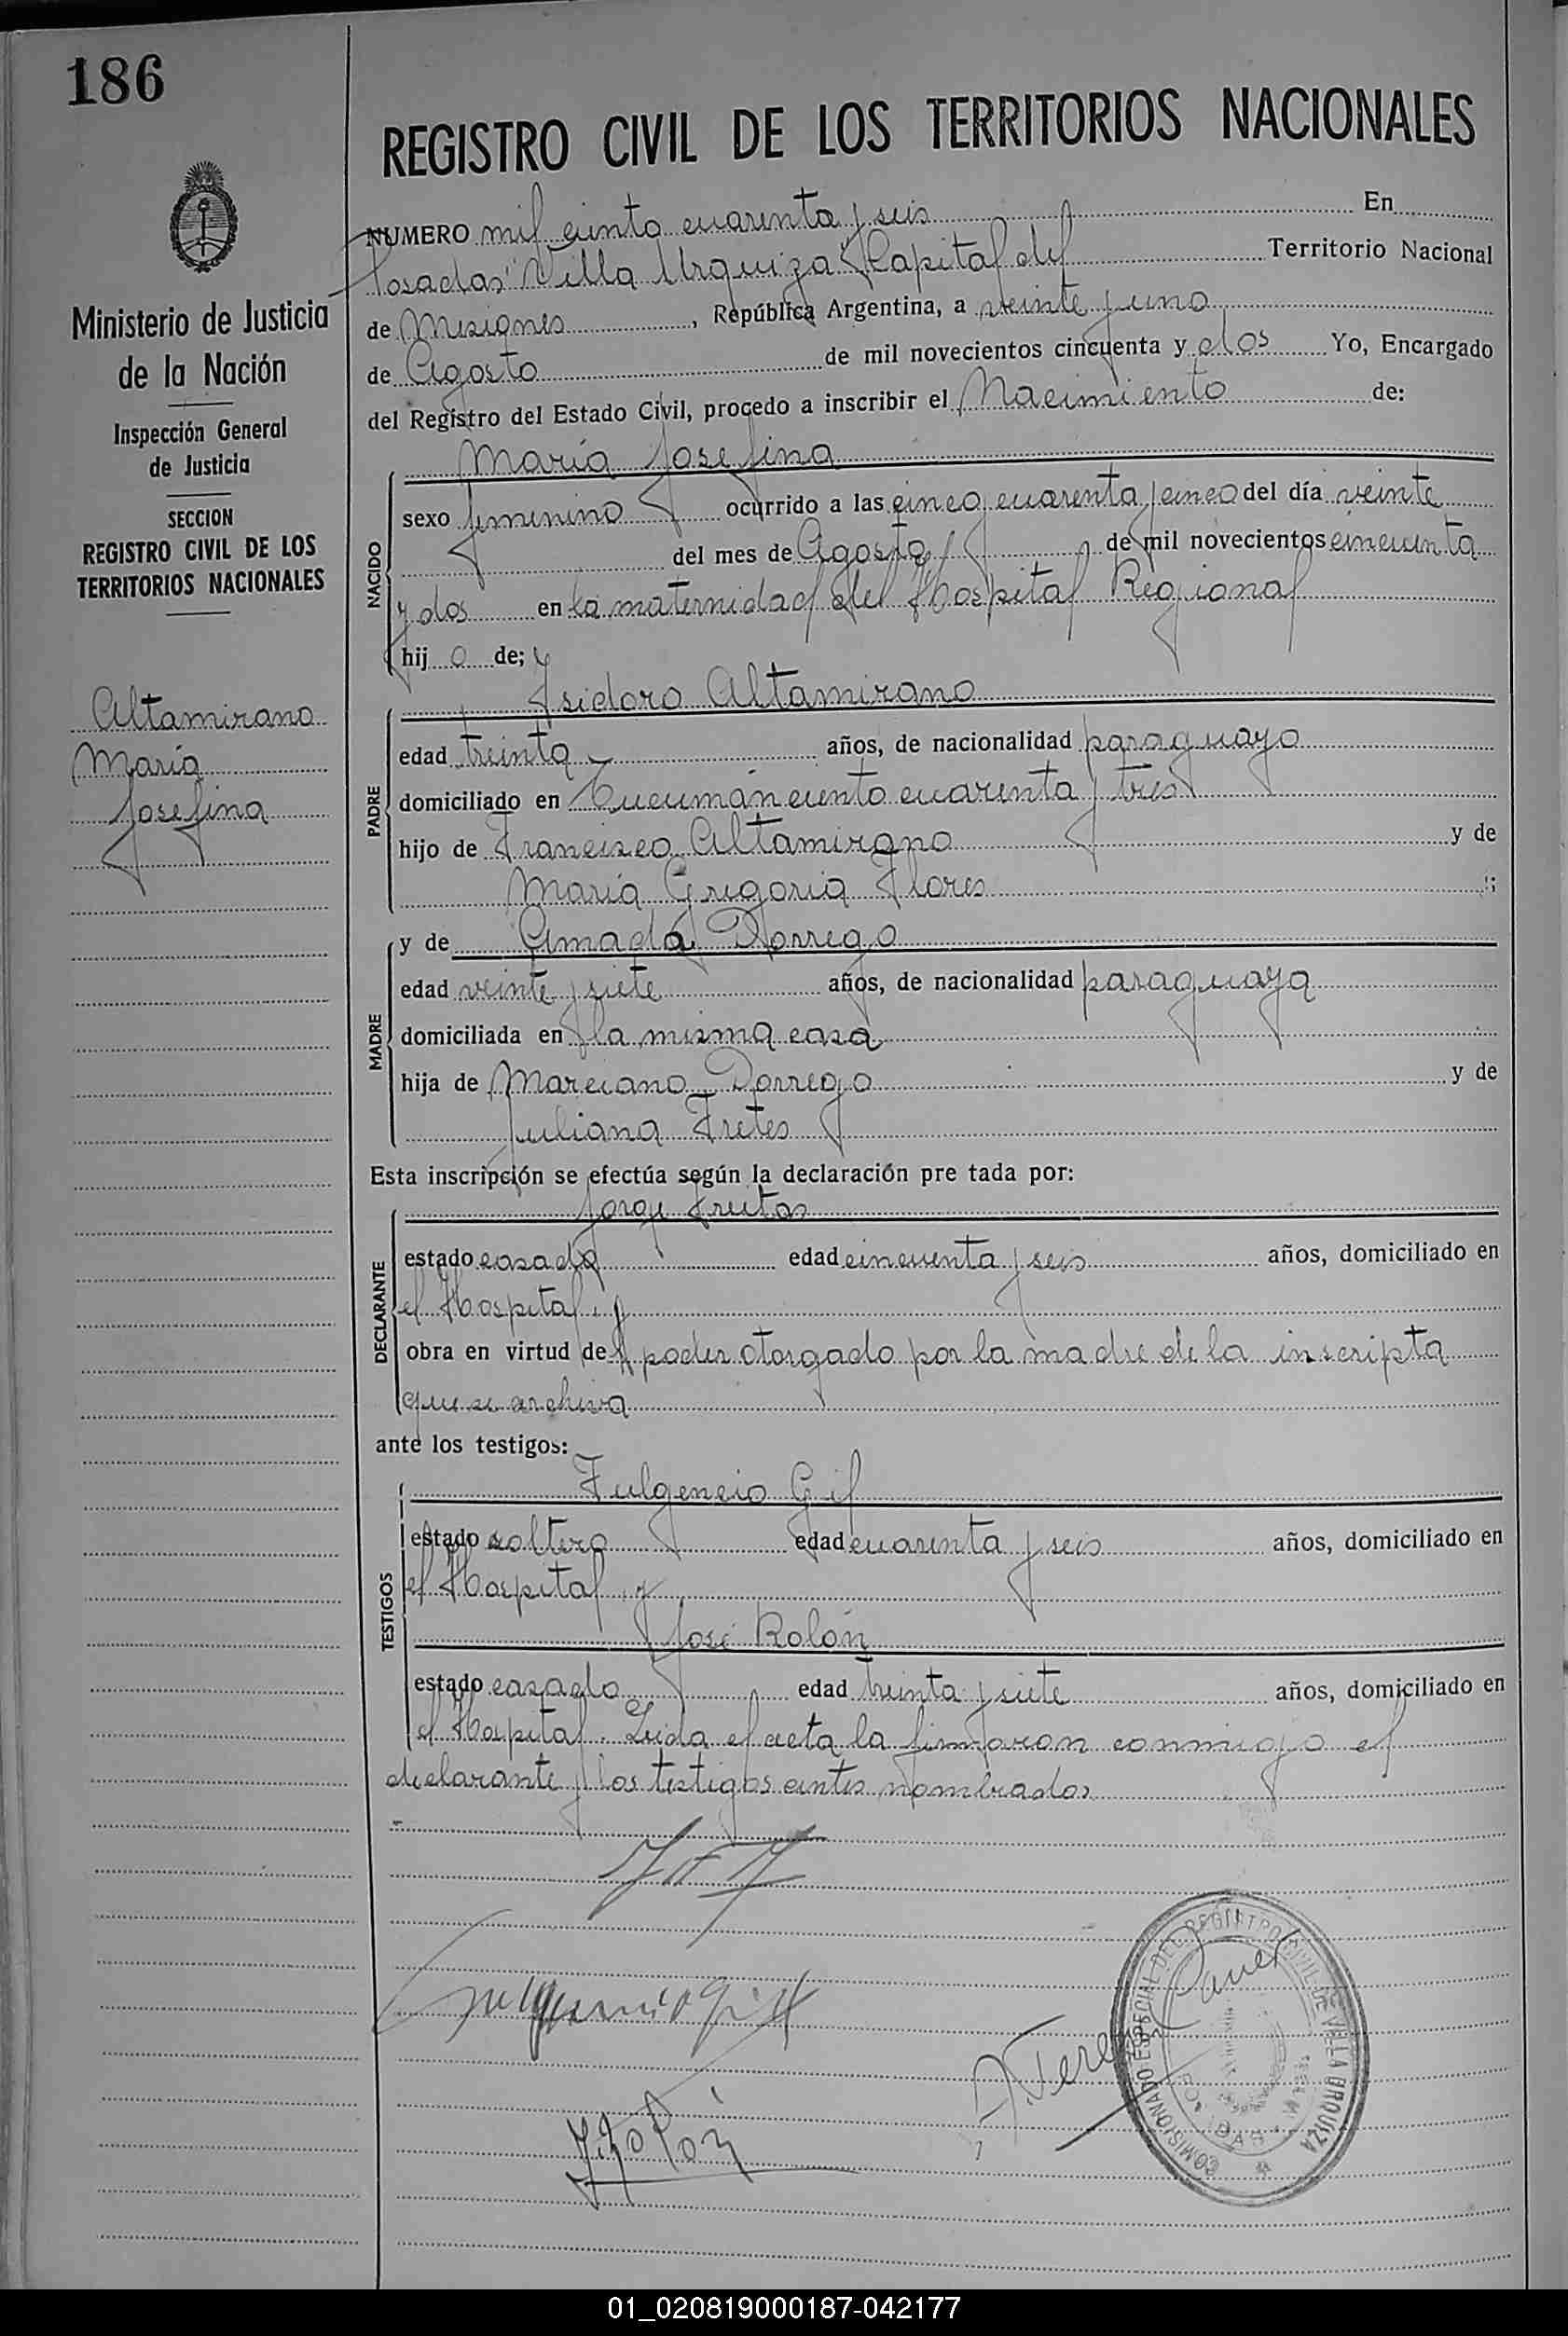 186
REGISTRO CIVIL DE LOS TERRITORIOS NACIONALES
Ministerio de Justicia
de la Nación
Inspección General
de Justicia
SECCION
REGISTRO CIVIL DE LOS
TERRITORIOS NACIONALES
Altamirano
María
Josefina
NUMERO mil ciento cuarenta y seis En
Posadas "Villa Urquiza" Capital del Territorio Nacional
de Misiones, República Argentina, a veinte y uno
de Agosto de mil novecientos cincuenta y dos Yo, Encargado
del Registro del Estado Civil, procedo a inscribir el Nacimiento de:
María Josefina
NACIDO
sexo femenino ocurrido a las cinco y cuarenta y cinco del día veinte
del mes de Agosto de mil novecientos cincuenta
y dos en la maternidad del Hospital Regional
hij a de;
Isidoro Altamirano
PADRE
edad treinta años, de nacionalidad paraguayo
domiciliado en Tucumán ciento cuarenta y tres
hijo de Francisco Altamirano y de
María Gregoria Flores
y de Amada Dorrego
MADRE
edad veinte y siete años, de nacionalidad paraguaya
domiciliada en la misma casa
hija de Marciano Dorrego y de
Juliana Fretes
Esta inscripción se efectúa según la declaración pre tada por:
Jorge Freitas
DECLARANTE
estado casado edad cincuenta y seis años, domiciliado en
el Hospital, y
obra en virtud del poder otorgado por la madre de la inscripta
que se archiva
ante los testigos:
Fulgencio Gil
TESTIGOS
estado soltero edad cuarenta y seis años, domiciliado en
el Hospital, y
José Rolón
estado casado edad treinta y siete años, domiciliado en
el Hospital. Leida el acta la firmaron conmigo el
declarante y los testigos antes nombrados
COMISIONADO ESPECIAL DEL REGISTRO CIVIL DE VILLA URQUIZA
01_020819000187-042177